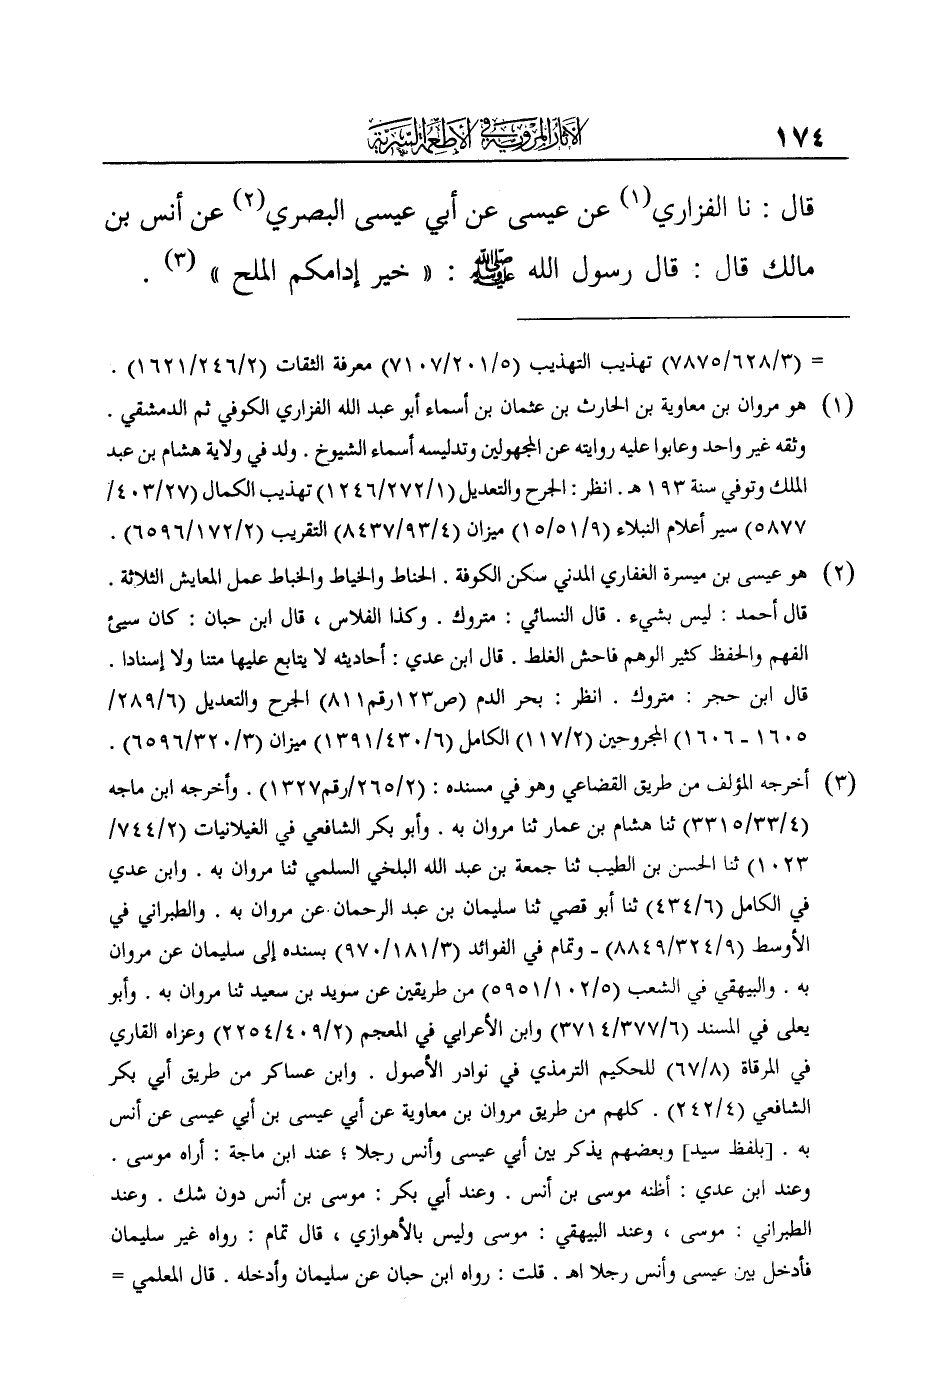 ١٧٤ الآثار المروية في الأطعمة السرية
قال : نا الفزاري(١) عن عيسى عن أبي عيسى البصري(٢) عن أنس بن
مالك قال : قال رسول الله ﷺ : « خير إدامكم الملح » (٣) .
= (٧٨٧٥/٦٢٨/٣) تهذيب التهذيب (٧١٠٧/٢٠١/٥) معرفة الثقات (١٦٢١/٢٤٦/٢) .
(١) هو مروان بن معاوية بن الحارث بن عثمان بن أسماء أبو عبد الله الفزاري الكوفي ثم الدمشقي .
وثقه غير واحد وعابوا عليه روايته عن المجهولين وتدليسه أسماء الشيوخ . ولد في ولاية هشام بن عبد
الملك وتوفي سنة ١٩٣ هـ . انظر : الجرح والتعديل (١٢٤٦/٢٧٢/١) تهذيب الكمال (٤٠٣/٢٧/
٥٨٧٧) سير أعلام النبلاء (١٥/٥١/٩) ميزان (٨٤٣٧/٩٣/٤) التقريب (٦٥٩٦/١٧٢/٢) .
(٢) هو عيسى بن ميسرة الغفاري المدني سكن الكوفة . الحناط والخياط والخباط عمل المعايش الثلاثة .
قال أحمد : ليس بشيء . قال النسائي : متروك . وكذا الفلاس ، قال ابن حبان : كان سيئ
الفهم والحفظ كثير الوهم فاحش الغلط . قال ابن عدي : أحاديثه لا يتابع عليها متنا ولا إسنادا .
قال ابن حجر : متروك . انظر : بحر الدم (ص١٢٣رقم٨١١) الجرح والتعديل (٢٨٩/٦/
١٦٠٥ ـ ١٦٠٦) المجروحين (١١٧/٢) الكامل (١٣٩١/٤٣٠/٦) ميزان (٦٥٩٦/٣٢٠/٣) .
(٣) أخرجه المؤلف من طريق القضاعي وهو في مسنده : (٢٦٥/٢/رقم١٣٢٧) . وأخرجه ابن ماجه
(٣٣١٥/٣٣/٤) ثنا هشام بن عمار ثنا مروان به . وأبو بكر الشافعي في الغيلانيات (٧٤٤/٢/
١٠٢٣) ثنا الحسن بن الطيب ثنا جمعة بن عبد الله البلخي السلمي ثنا مروان به . وابن عدي
في الكامل (٤٣٤/٦) ثنا أبو قصي ثنا سليمان بن عبد الرحمان عن مروان به . والطبراني في
الأوسط (٨٨٤٩/٣٢٤/٩) ـ وتمام في الفوائد (٩٧٠/١٨١/٣) بسنده إلى سليمان عن مروان
به . والبيهقي في الشعب (٥٩٥١/١٠٢/٥) من طريقين عن سويد بن سعيد ثنا مروان به . وأبو
يعلى في المسند (٣٧١٤/٣٧٧/٦) وابن الأعرابي في المعجم (٢٢٥٤/٤٠٩/٢) وعزاه القاري
في المرقاة (٦٧/٨) للحكيم الترمذي في نوادر الأصول . وابن عساكر من طريق أبي بكر
الشافعي (٢٤٢/٤) . كلهم من طريق مروان بن معاوية عن أبي عيسى بن أبي عيسى عن أنس
به . [بلفظ سيد] وبعضهم يذكر بين أبي عيسى وأنس رجلا ؛ عند ابن ماجة : أراه موسى .
وعند ابن عدي : أظنه موسى بن أنس . وعند أبي بكر : موسى بن أنس دون شك . وعند
الطبراني : موسى ، وعند البيهقي : موسى وليس بالأهوازي ، قال تمام : رواه غير سليمان
فأدخل بين عيسى وأنس رجلا اهـ . قلت : رواه ابن حبان عن سليمان وأدخله . قال المعلمي =